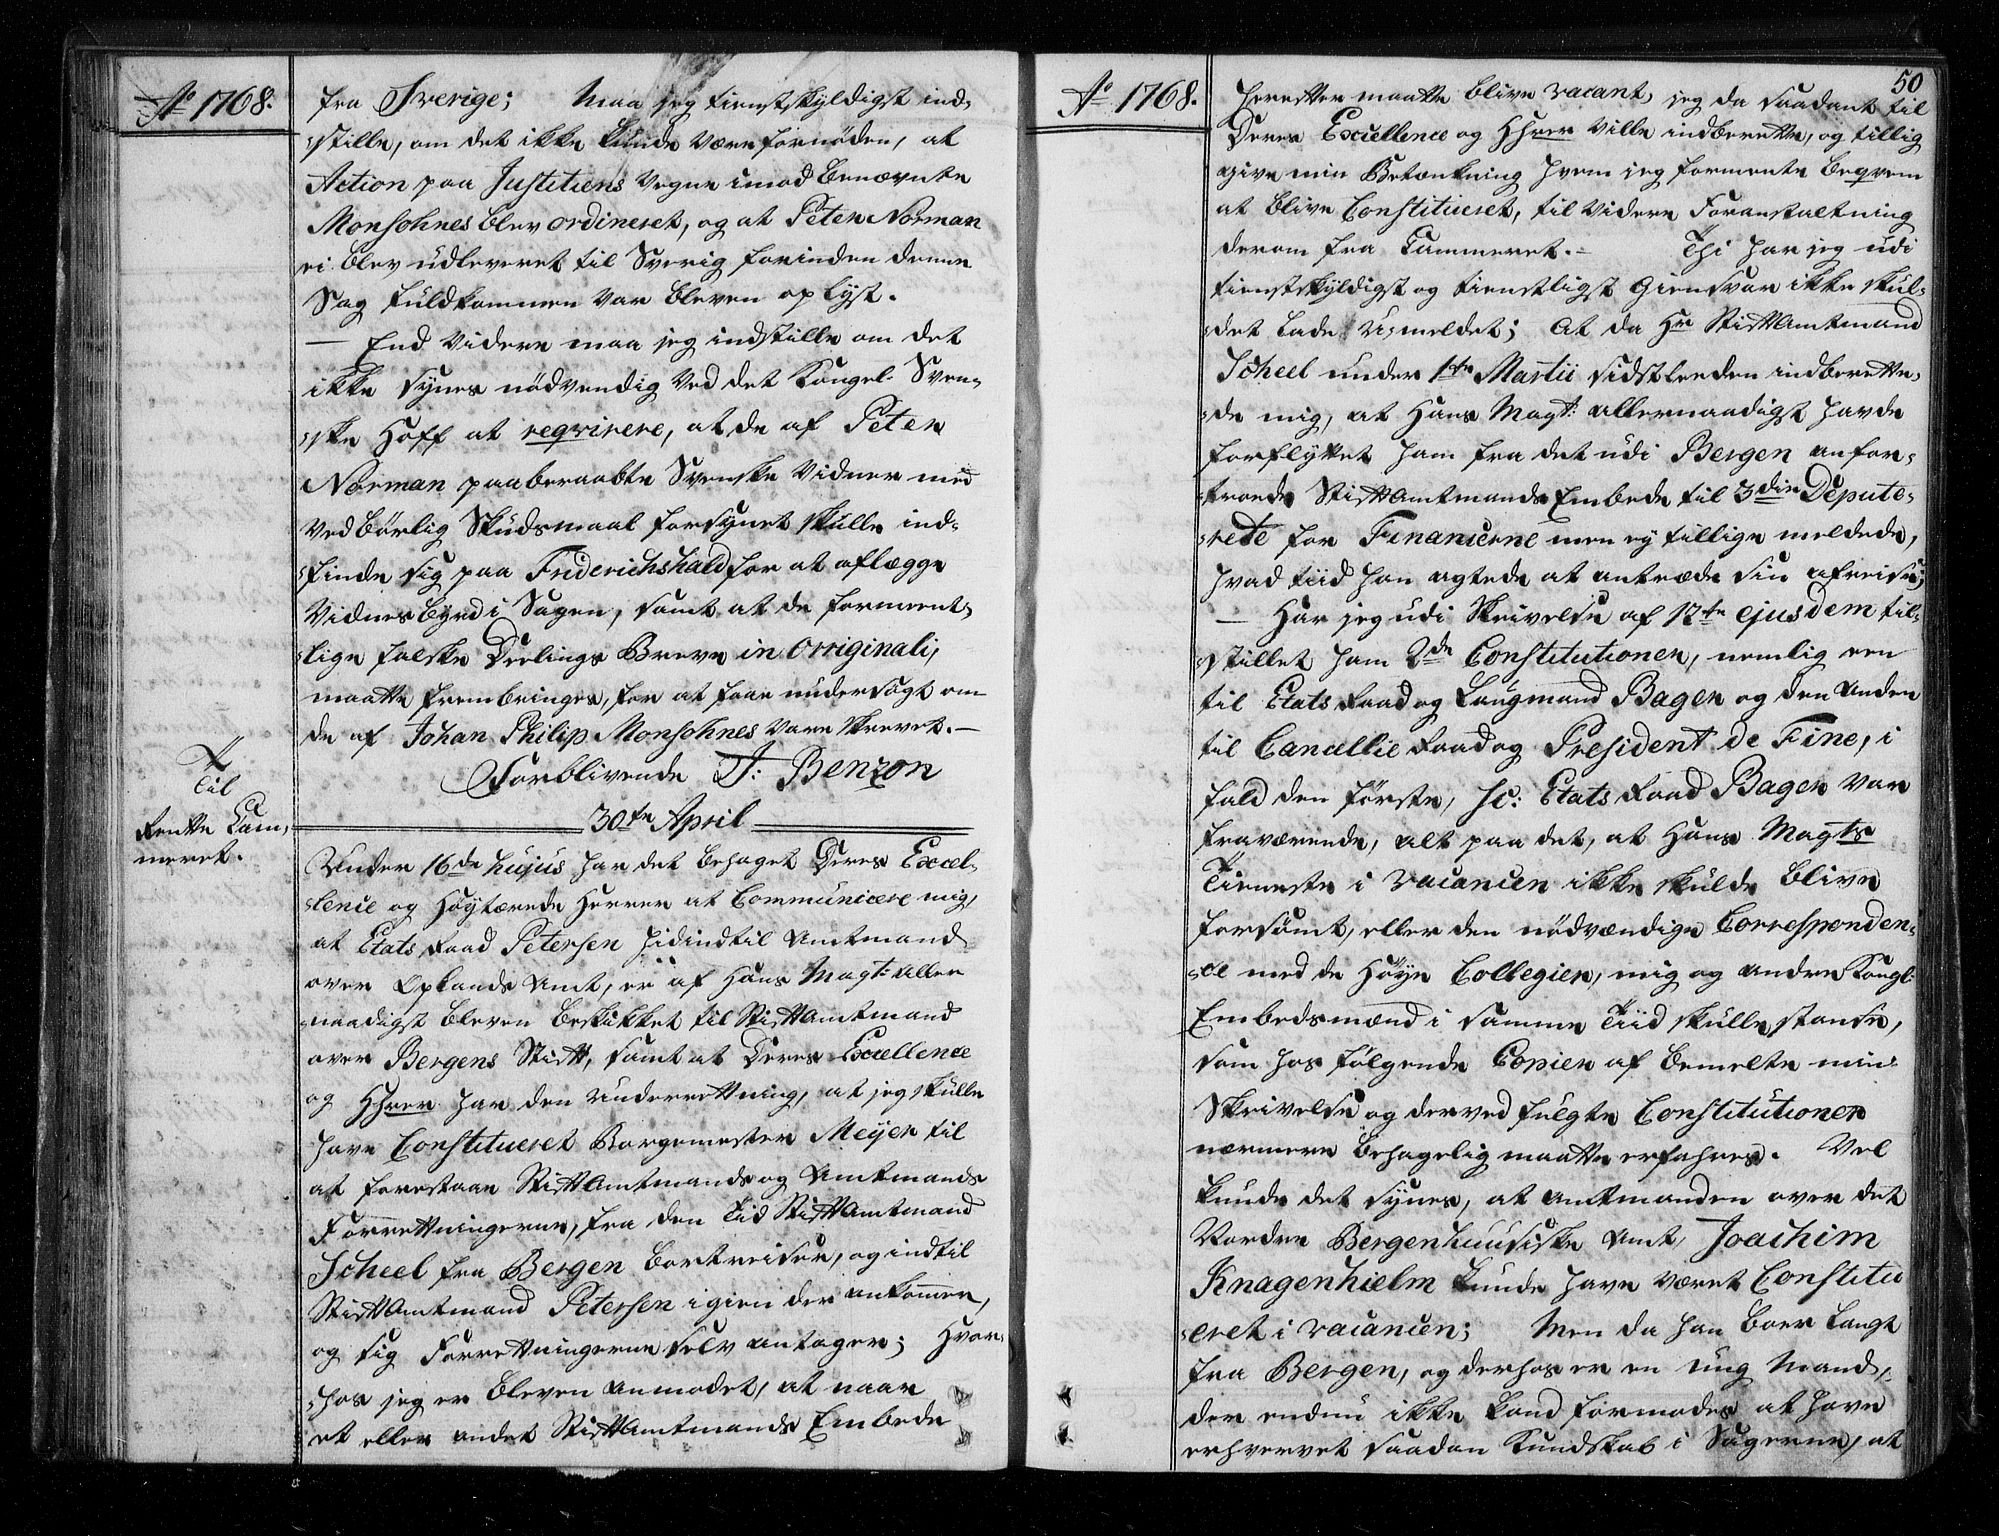 Ao 1768.
fra Sverige; Maa jeg tienstskyldigst ind-
stille, om det ikke kunde være fornøden, at
Action paa Justitiens Vegne imod benævnte
Monsohnes blev ordineret, og at Peter Norman
ei blev udleveret til Sverig forinden denne
Sag fuldkommen var bleven oplyst.
— End videre maa jeg indstille om det
ikke synes nødvendig ved det Kongel. Sven-
ske Hoff at reqvirere, at de af Peter
Norman paaberaabte Svenske Vidner med
vedbørlig Skudsmaal forsynet skulle ind-
finde sig paa Friderichshald for at aflægge
Vidnesbyrd i Sagen, samt at de forment-
lige falske Deelings Breve in originali,
maatte frembringes, for at faae undersøgt om
de af Johan Philip Monsohnes vare skrevet.—
Forblivende J: Benzon
30te April
Til
Rentte Cam-
meret.
Under 16de hujus har det behaget Deres Excel-
lence og Høytærede Herrer at Communicere mig,
at Etats Raad Petersen hidindtil Amtmand
over Oplands Amt, er af Hans Mayt: aller
naadigst bleven beskikket til Stiftamtmand
over Bergens Stift, samt at Deres Excellence
og HHrer har den Underrettning, at jeg skulle
have Constitueret Borgemester Meyer til
at forestaae Stiftamtmands og Amtmands
Forrettningerne, fra den Tid Stiftamtmand
Scheel fra Bergen bortreiser, og indtil
Stiftamtmand Petersen igien der ankommer,
og sig Forrettningerne selv antager; Hvor-
hos jeg er bleven anmodet, at naar
et eller andet Stiftamtmands Embede
50
Ao 1768.
herefter maatte blive vacant, jeg da saadant til
Deres Excellence og HHrer ville indberette, og tillig
give min Betænkning hvem jeg formente beqvem
at blive Constitueret, til videre Foranstaltning
derom fra Cammeret.- Thi har jeg udi
tienstskyldigst og tienstligst Giensvar ikke skul-
det lade u-meldet; At da Hr Stiftamtmand
Scheel under 1te Martii sidstleeden indberette-
de mig, at Hans Mayt: allernaadigst havde
forflyttet ham fra det udi Bergen anfor-
troede Stiftamtmands Embede til 3die Depute-
rede for Financerne men ey tillige meldede,
hvad tiid han agtede at antræde sin afreise;
— Har jeg udi Skrivelse af 12te ejusdem til-
stillet ham 2de Constitutioner, nemlig een
til Etats Raad og Laugmand Bager og den anden
til Cancellie Raad og President de Fine, i
fald den første, sc: Etats Raad Bager var
fraværende, alt paa det, at Hans Mayts
Tieneste i vacancen ikke skulde blive
forsømt, eller den nødvændige Corresponden-
ce med de Høye Collegier, mig og andre Kongl.
Embedsmænd i samme Tiid skulle standse,
som hos følgende Copier af bemelte min
Skrivelse og derved fulgte Constitutioner
nærmere behagelig maatte erfahres. Vel
kunde det synes, at Amtmanden over det
Nordre Bergenhuusiske Amt, Joachim
Knagenhielm kunde have været Constitu
eret i vacancen; Men da han boer langt
fra Bergen, og derhos er en ung Mand,
der endnu ikke kand formodes at have
erhvervet saadan Kundskab i Sagerne, at